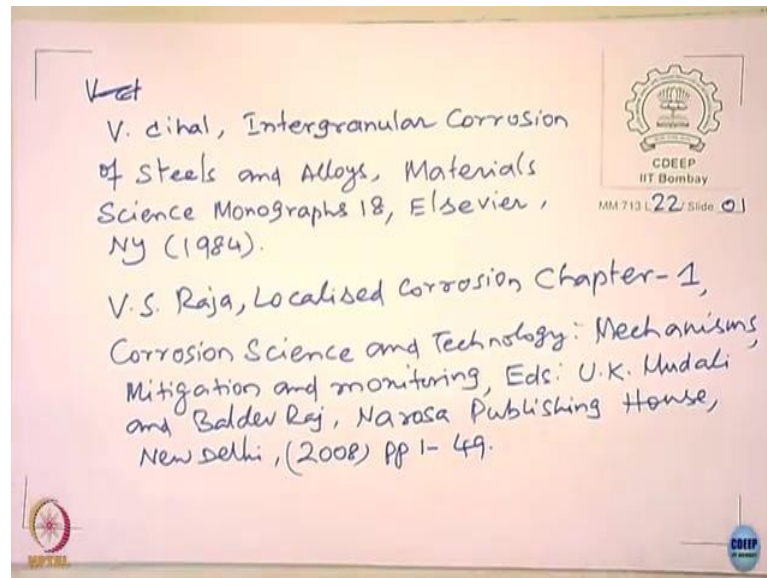 V. cihal, Intergranular Corrosion
of Steels and Alloys, Materials
Science Monographs 18, Elsevier,
NY (1984).
V.S. Raja, Localised Corrosion Chapter-1,
Corrosion Science and Technology: Mechanisms,
Mitigation and monitoring, Eds: U.K. Mudali
and Baldev Raj, Narosa Publishing House,
New Delhi, (2008) pp 1-49.
CDEEP
IIT Bombay
MM 713 L 22/ Slide 01
NPTEL
CDEEP
IIT BOMBAY